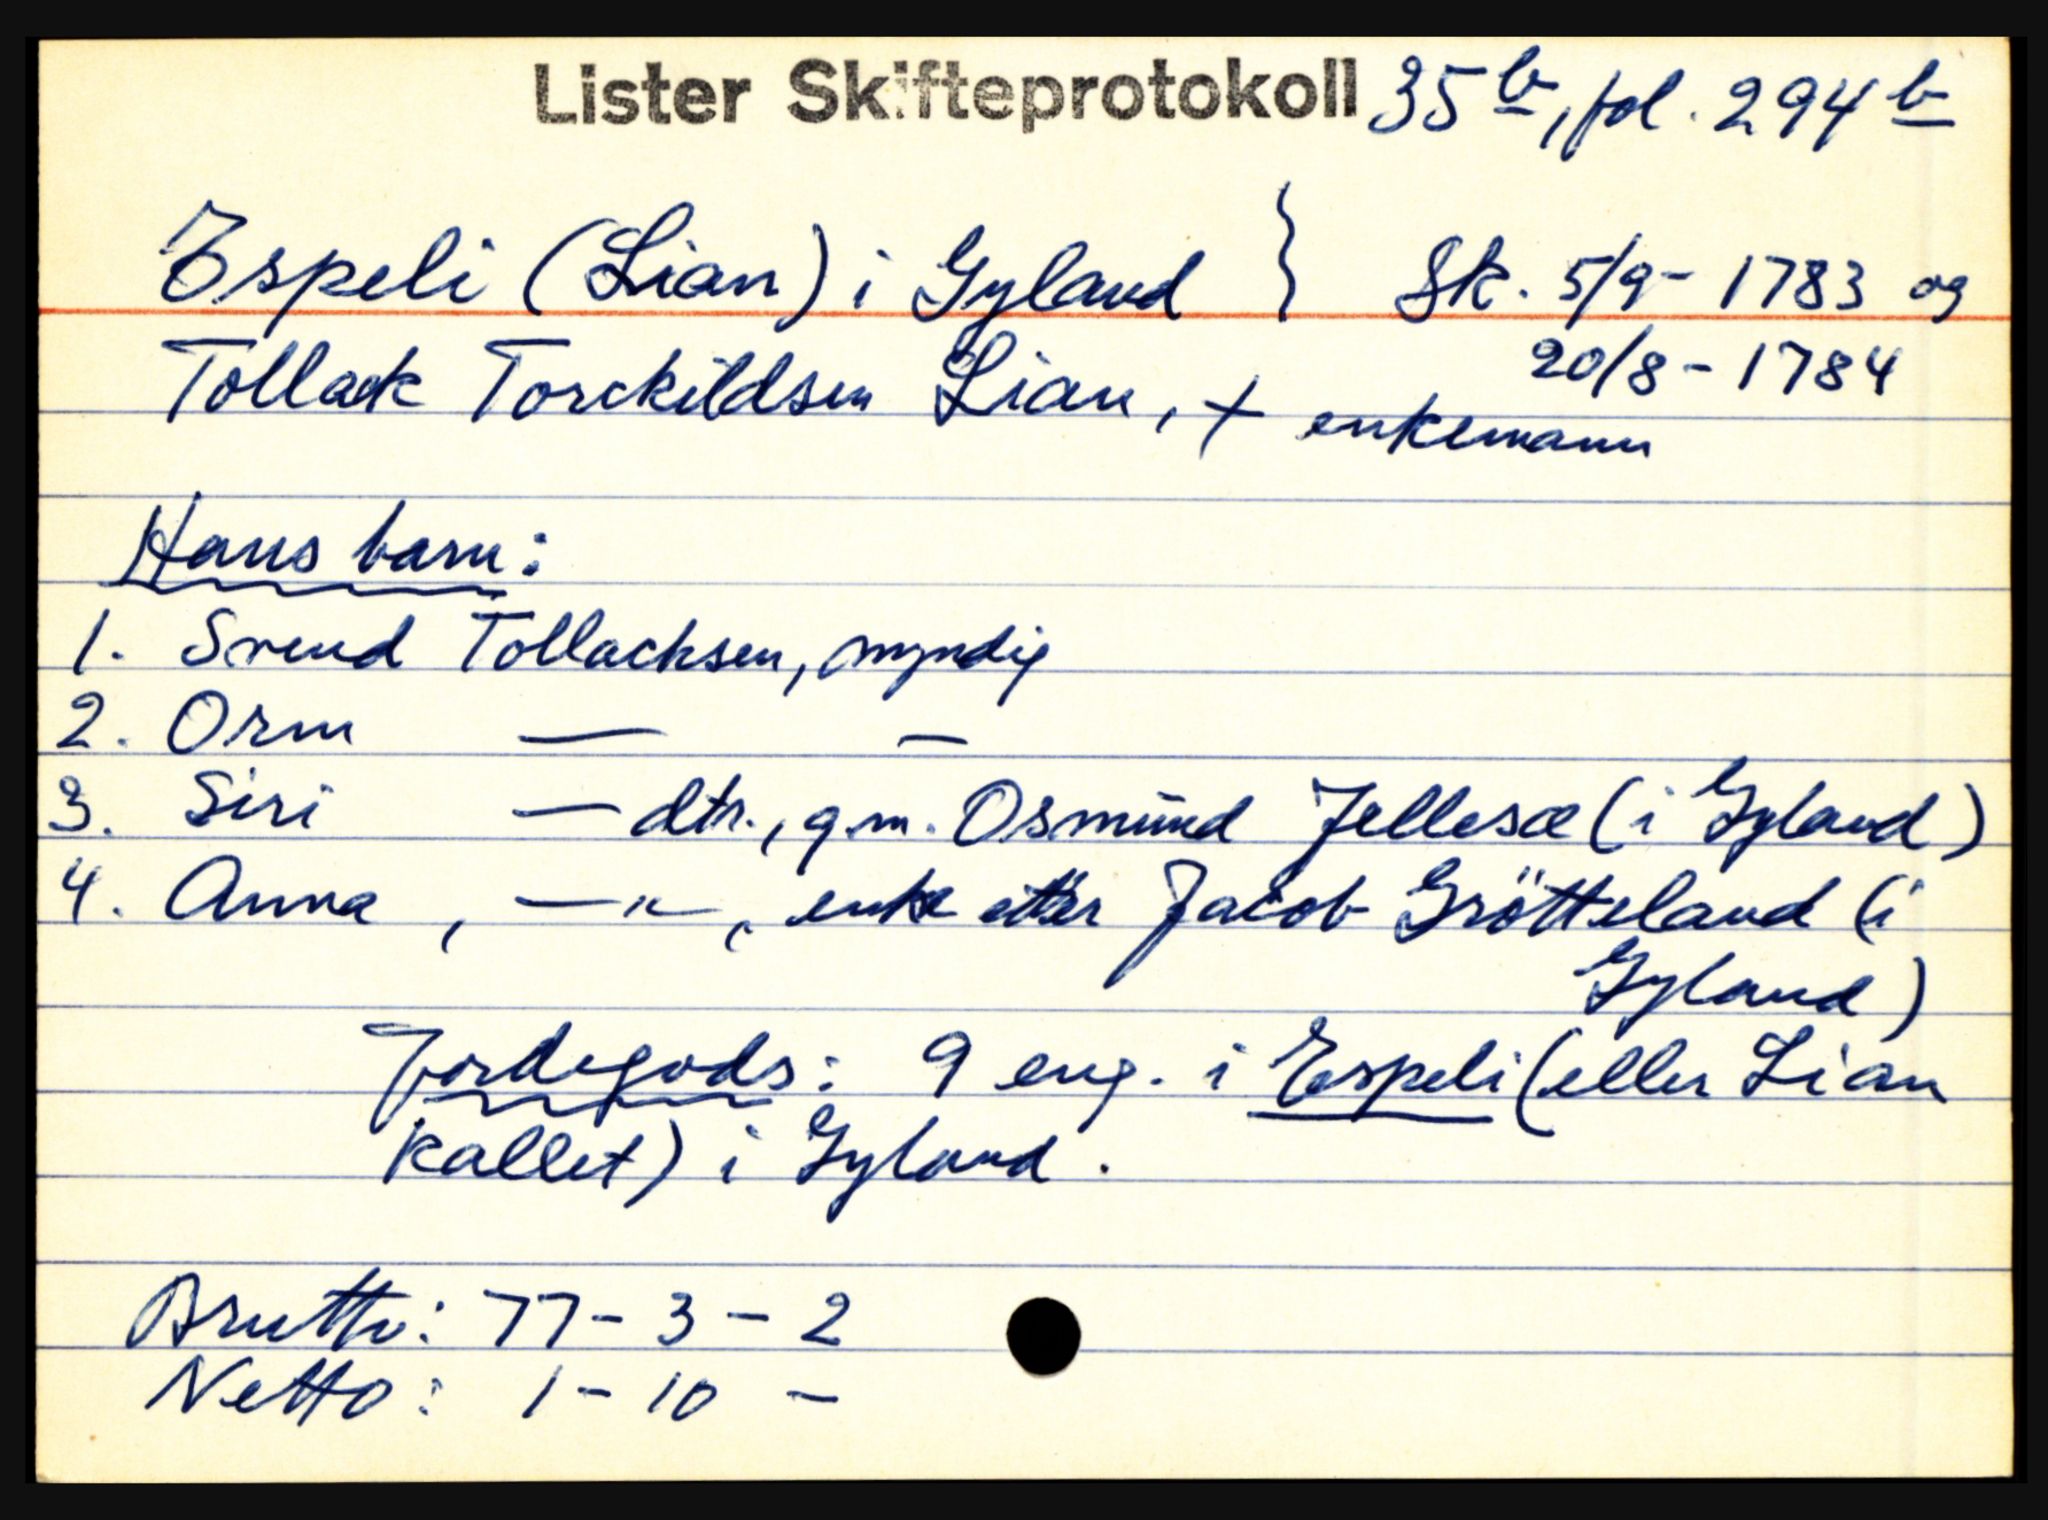 Lister Skifteprotokoll 35 b, fol. 294 b
Espeli (Lian) i Gyland } Sk. 5/9 - 1783 og
20/8 - 1784
Tollack Torckildsen Lian, + enkemann
Hans barn:
1. Svend Tollachsen, myndig
2. Orm — —
3. Siri — dtr., g.m. Osmund Jellesæ (i Gyland)
4. Anna, —"—, enke etter Jacob Grötteland (i
Gyland)
Jordegods: 9 eng. i Espeli (eller Lian
kallet) i Gyland.
Brutto: 77 - 3 - 2
Netto: 1 - 10 -